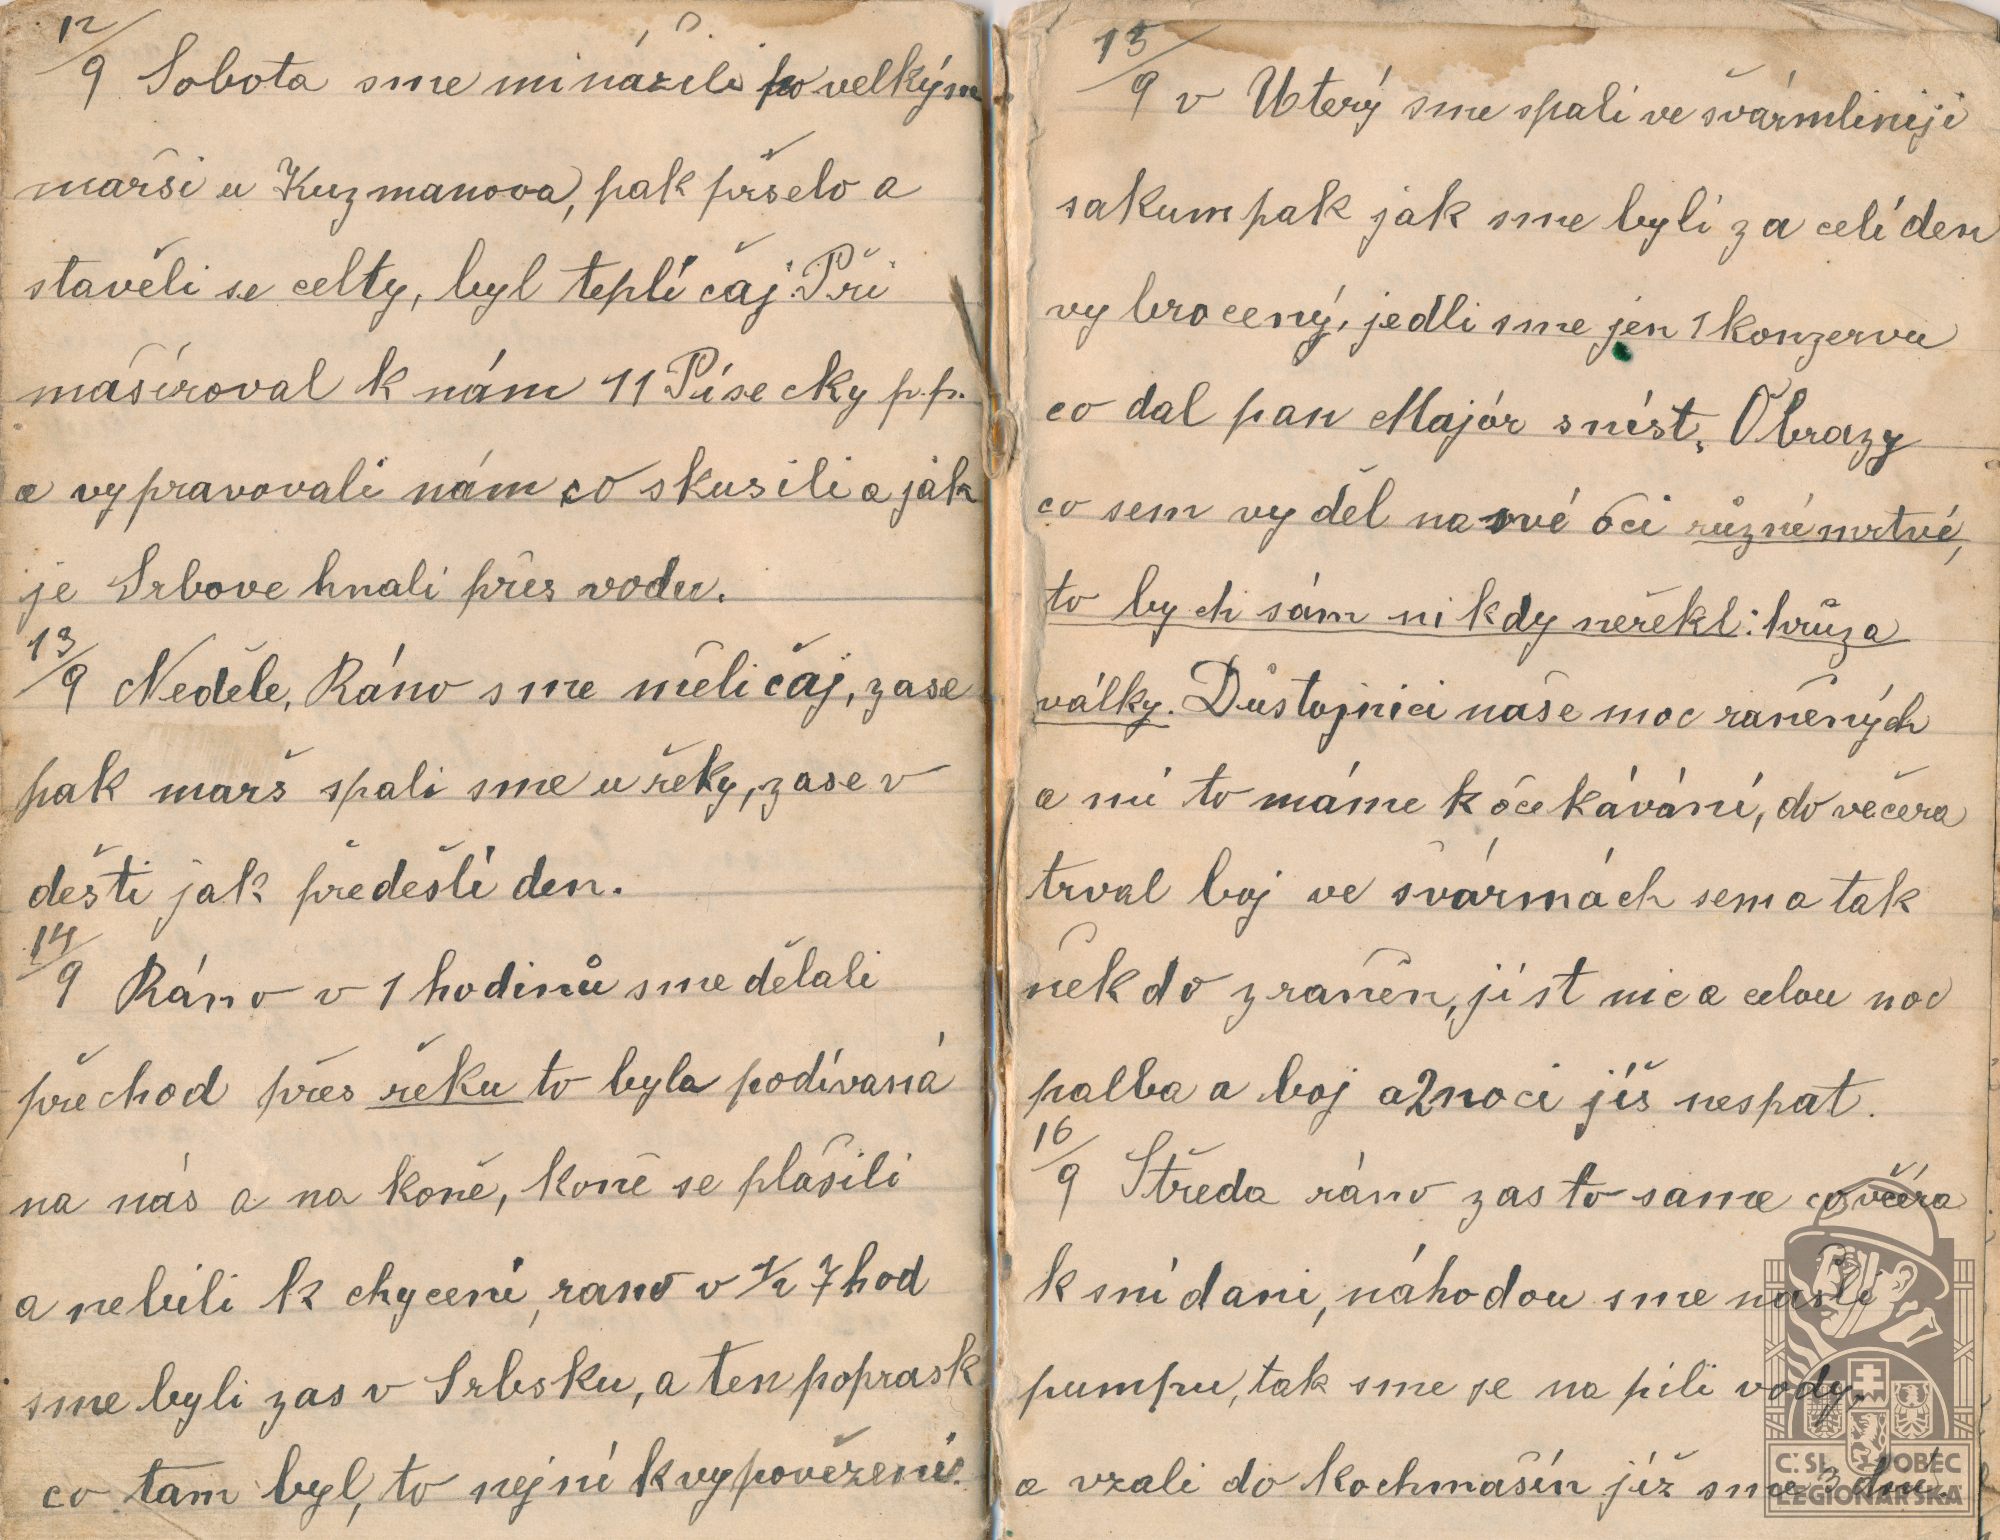 12/9 Sobota sme minážili po velkým
marši u Kuzmanova, pak pršelo a
stavěli se celty, byl teplí čaj. Při
mašíroval k nám 11 Písecky p.p.
a vypravovali nám co skusili a jak
je Srbove hnali přes vodu.
13/9 Neděle, Ráno sme měli čaj, zase
pak marš spali sme u řeky, zase v
dešti jak předešlí den.
14/9 Ráno v 1 hodinů sme dělali
přechod přes řeku to byla podívaná
na nás a na koně, koně se plašili
a nebili k chycení, rano v 1/2 7 hod
sme byli zas v Srbsku, a ten poprask
co tam byl, to nejní k vypovězení.
15/9 v Uterý sme spali ve švármliniji
sakumpak jak sme byli za celí den
vybrocený, jedli sme jen 1 konzervu
co dal pan Majór snést. Obrazy
co sem vyděl na své oči různé mrtvé,
to bych sám nikdy neřekl: hrůza
války. Důstojnici naše moc raněných
a mi to máme k očekávání, do večera
trval boj ve švármách sem a tak
někdo zraněn, jíst nic a celou noc
palba a boj a 2 noci již nespat.
16/9 Středa ráno zas to same co včéra
k snídani, náhodou sme našli
pumpu, tak sme se na pili vody,
a vzali do kochmašín již sme 3 dni.
Č. SL. OBEC
LEGIONÁŘSKÁ